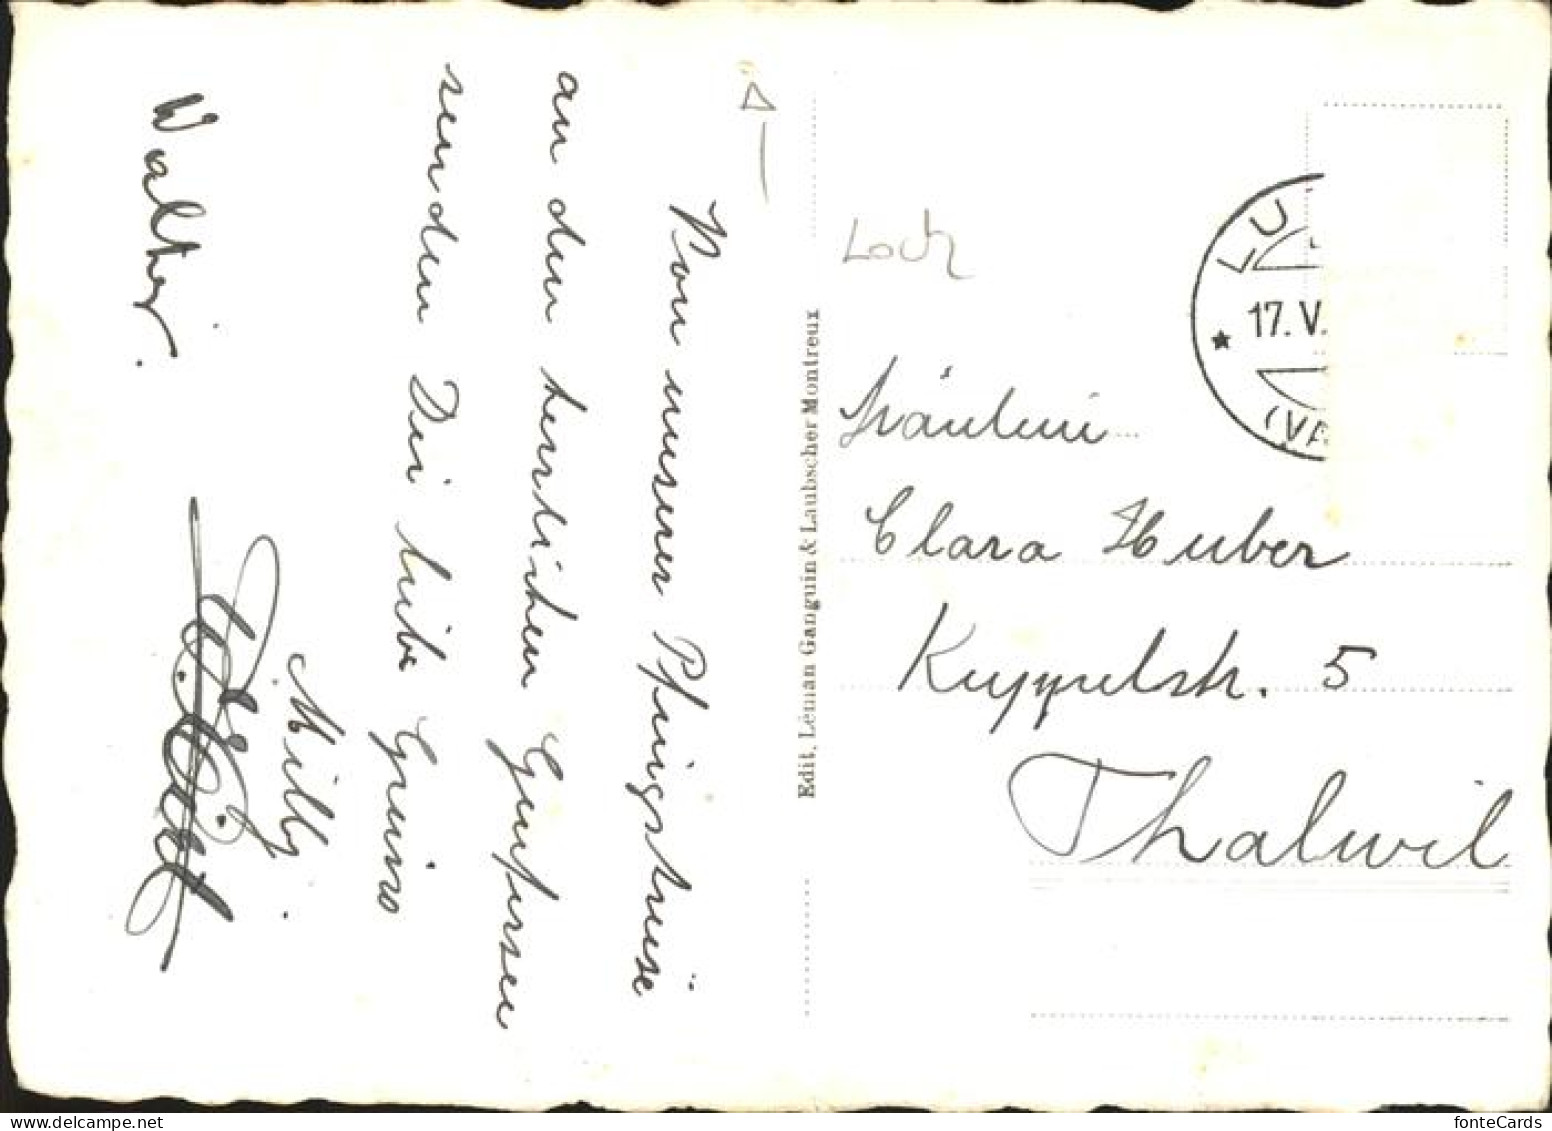 Von unserer Pfingstreise
an den herrlichen Genfersee
senden Dir liebe Grüsse
Milly
Walter.
1.—
Edit. Léman Ganguin & Laubscher Montreux
Loch
LU
17. V.
(VA
Fräulein
Clara Huber
Kuppelstr. 5
Thalwil
fonteCards